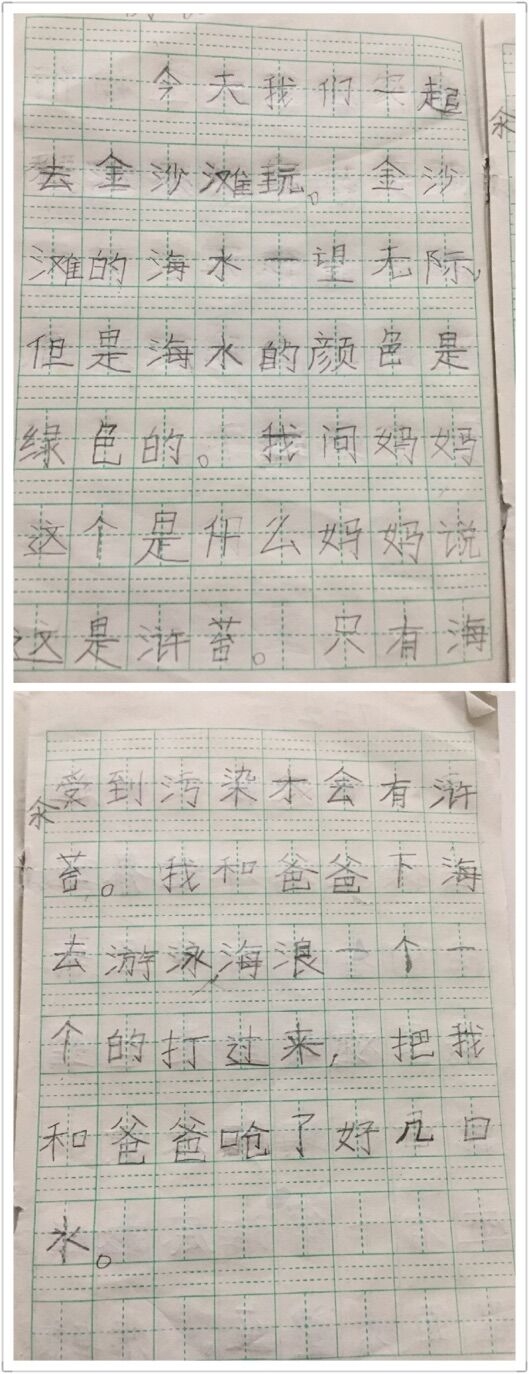 今天我们一起
去金沙滩玩。金沙
滩的海水一望无际,
但是海水的颜色是
绿色的。我问妈妈
这个是什么妈妈说
这是浒苔。只有海
水受到污染才会有浒
苔。我和爸爸下海
去游泳,海浪一个一
个的打过来,把我
和爸爸呛了好几口
水。